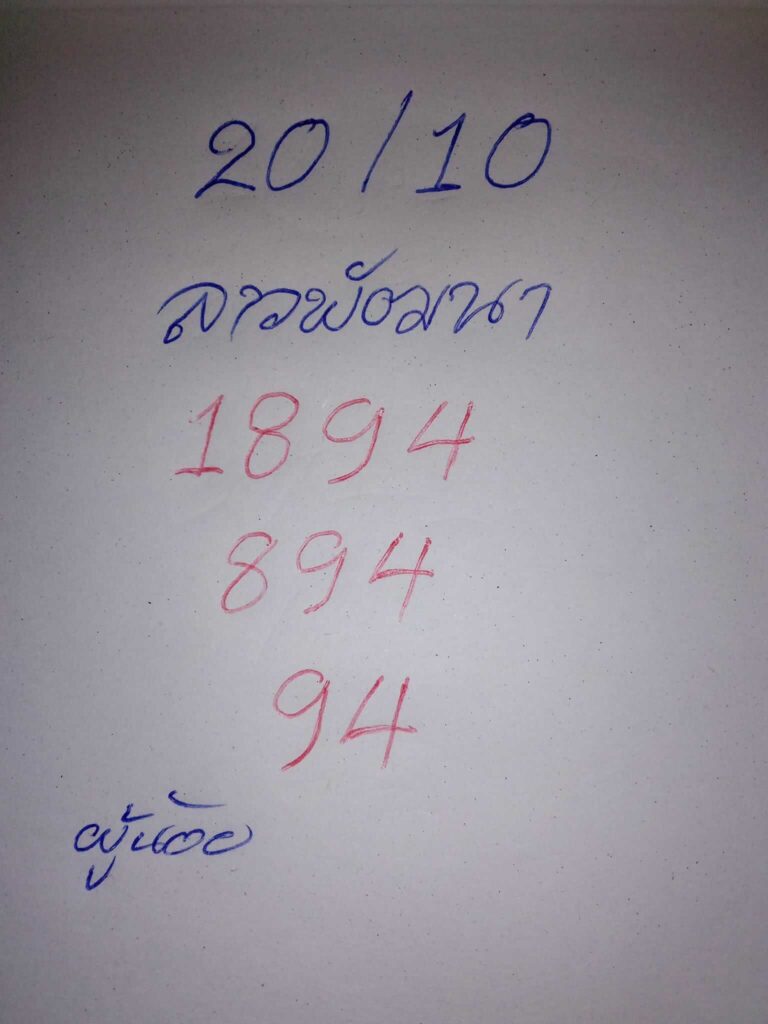 20/10
ลาวพัฒนา
1894
894
94
ผู้น้อย